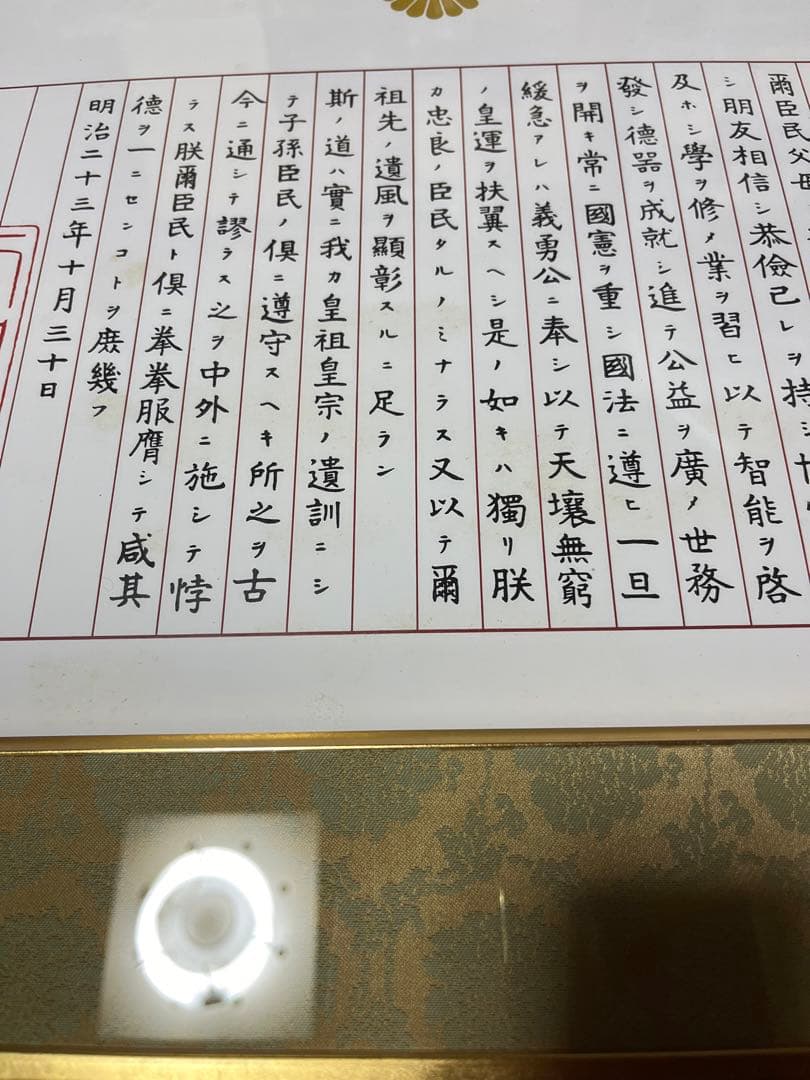 爾臣民父母
シ朋友相信シ恭儉己レヲ持シ
及ホシ學ヲ修メ業ヲ習ヒ以テ智能ヲ啓
發シ德器ヲ成就シ進テ公益ヲ廣メ世務
ヲ開キ常ニ國憲ヲ重シ國法ニ遵ヒ一旦
緩急アレハ義勇公ニ奉シ以テ天壤無窮
ノ皇運ヲ扶翼スヘシ是ノ如キハ獨リ朕
カ忠良ノ臣民タルノミナラス又以テ爾
祖先ノ遺風ヲ顯彰スルニ足ラン
斯ノ道ハ實ニ我カ皇祖皇宗ノ遺訓ニシ
テ子孫臣民ノ俱ニ遵守スヘキ所之ヲ古
今ニ通シテ謬ラス之ヲ中外ニ施シテ悖
ラス朕爾臣民ト俱ニ拳拳服膺シテ咸其
德ヲ一ニセンコトヲ庶幾フ
明治二十三年十月三十日